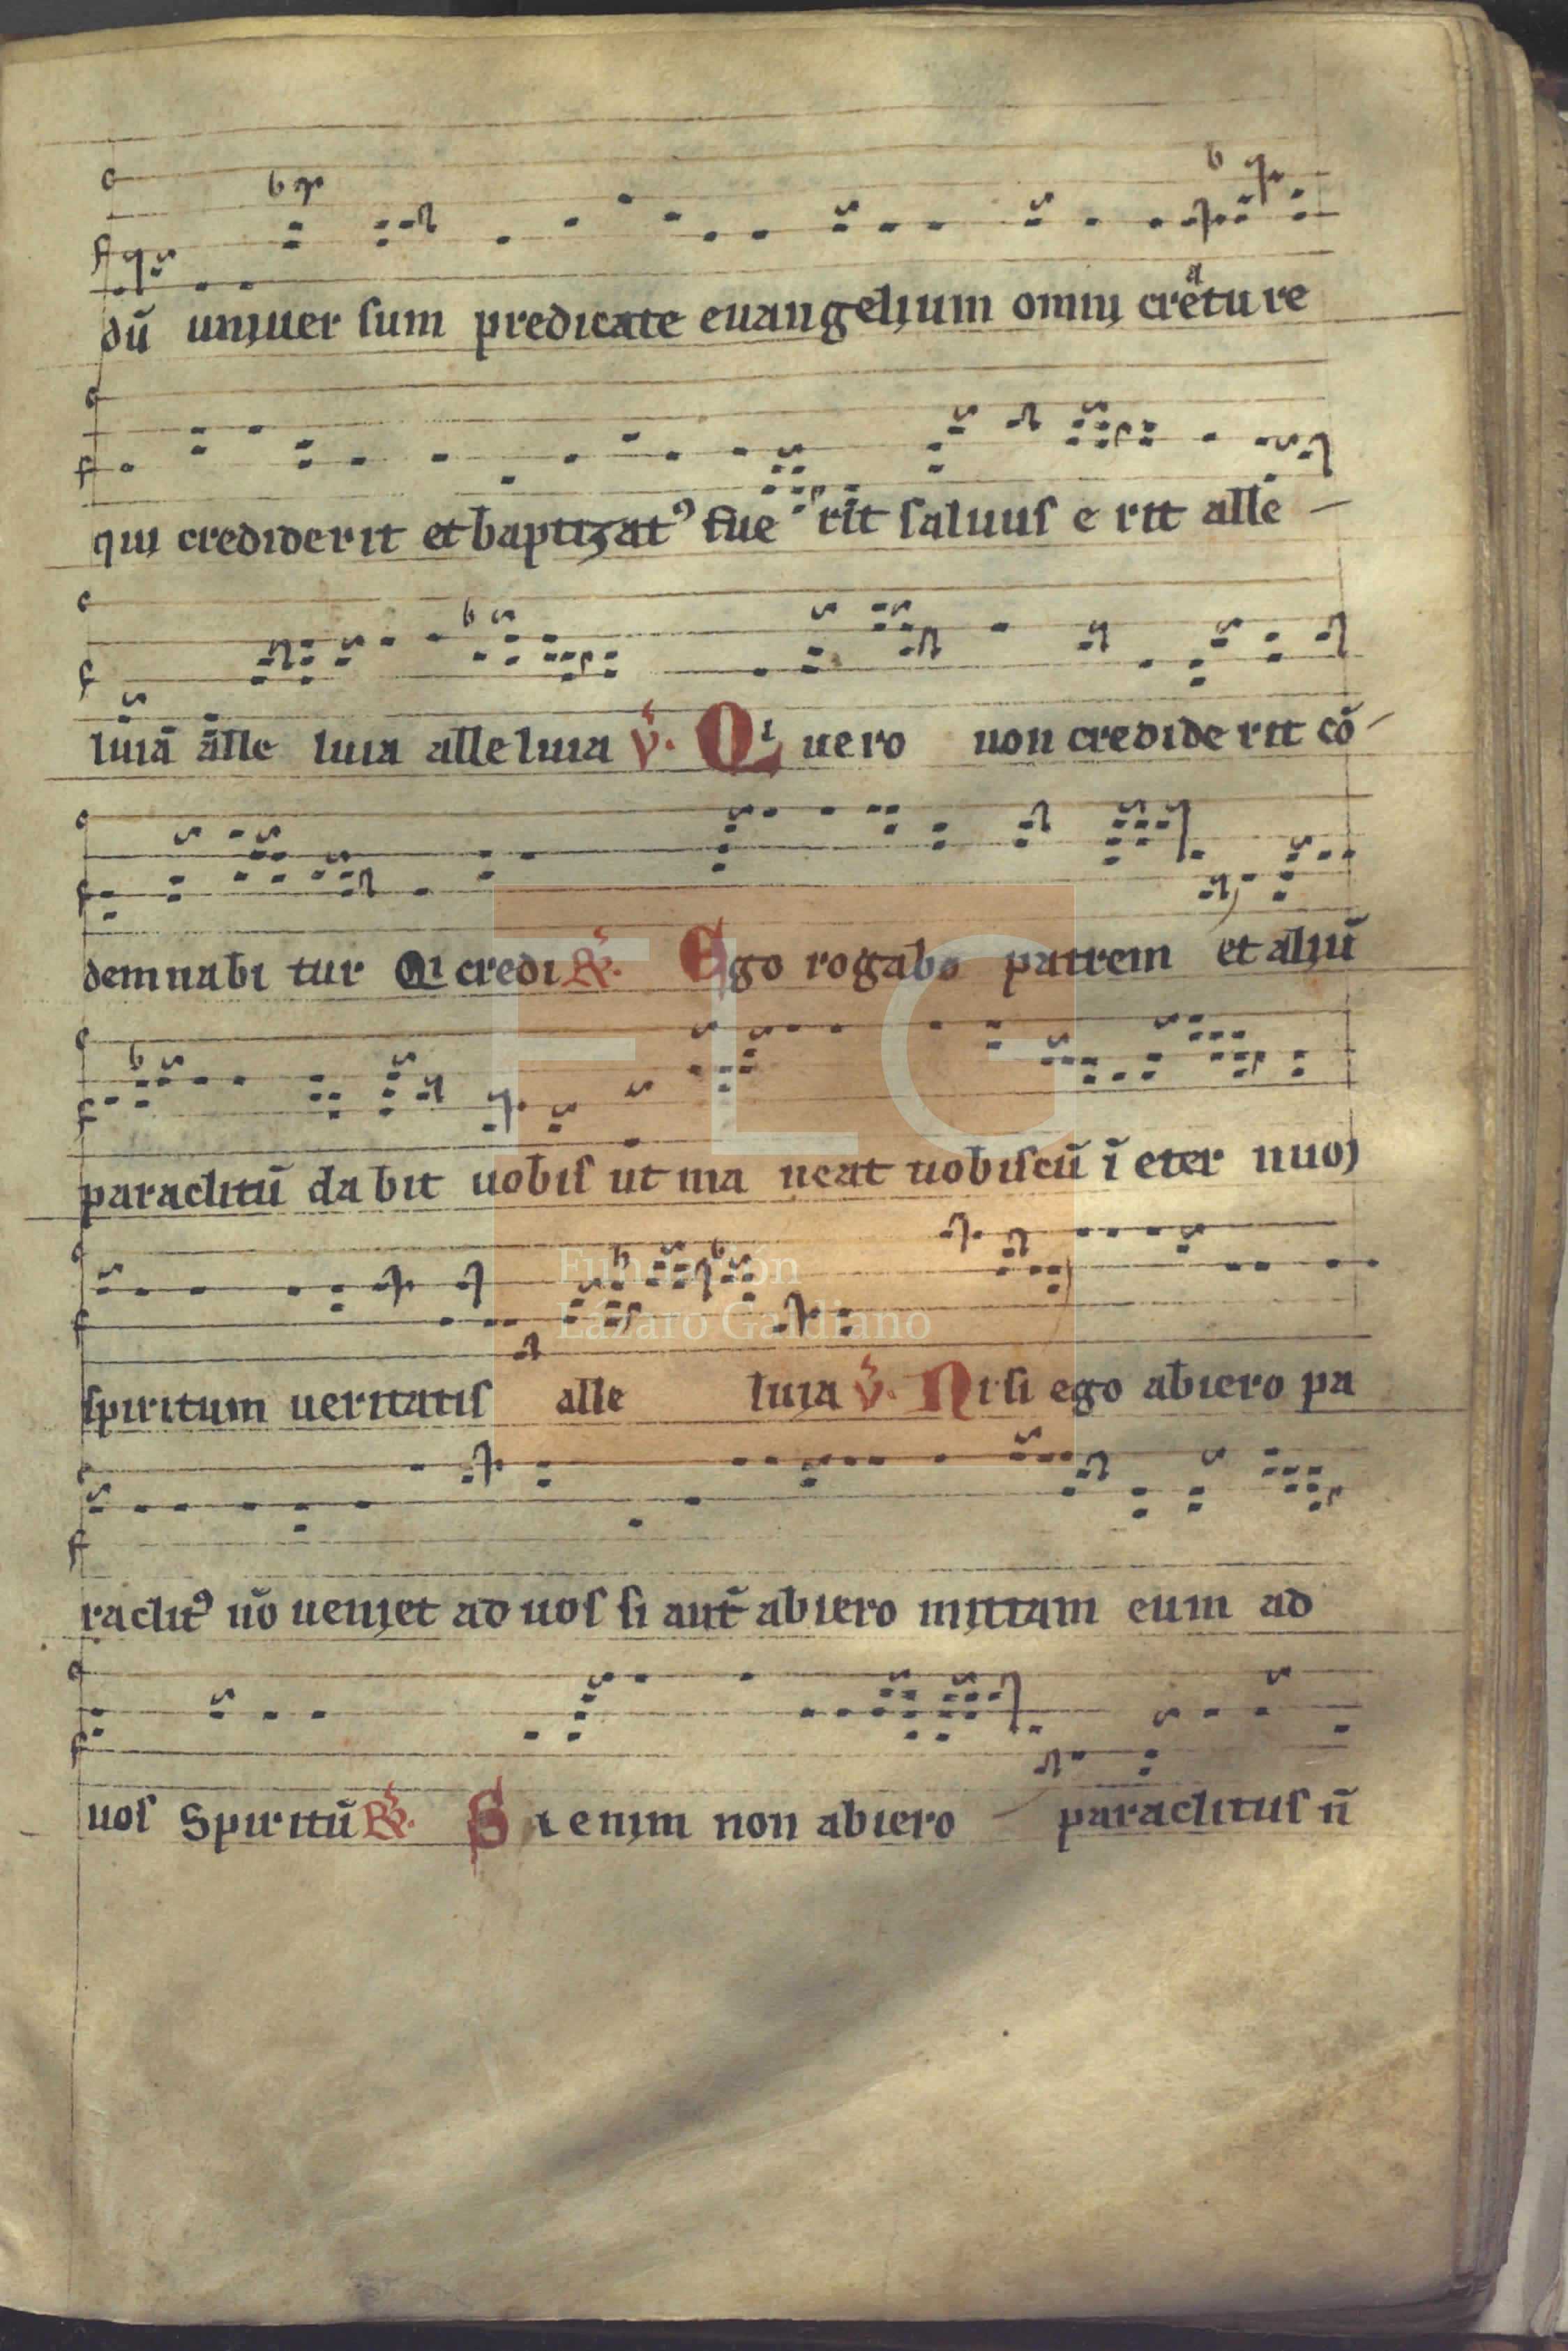 dū uniuer sum predicate euangelium omni creature
qui crediderit et baptizatꝰ fue rit saluus e rit alle
luiā alle luia alleluia ℣. Qi uero non credide rit cō
demnabi tur Qi credi ℟. Ego rogabo patrem et aliū
paraclitū da bit uobis ut ma neat uobiscū ī eter nuꝫ
spiritum ueritatis alle luia ℣. Nisi ego abiero pa
raclitꝰ nō ueniet ad uos si aut̄ abiero mittam eum ad
uos Spiritū ℟. Si enim non abiero paraclitus n̄
FLG
Fundación
Lázaro Galdiano